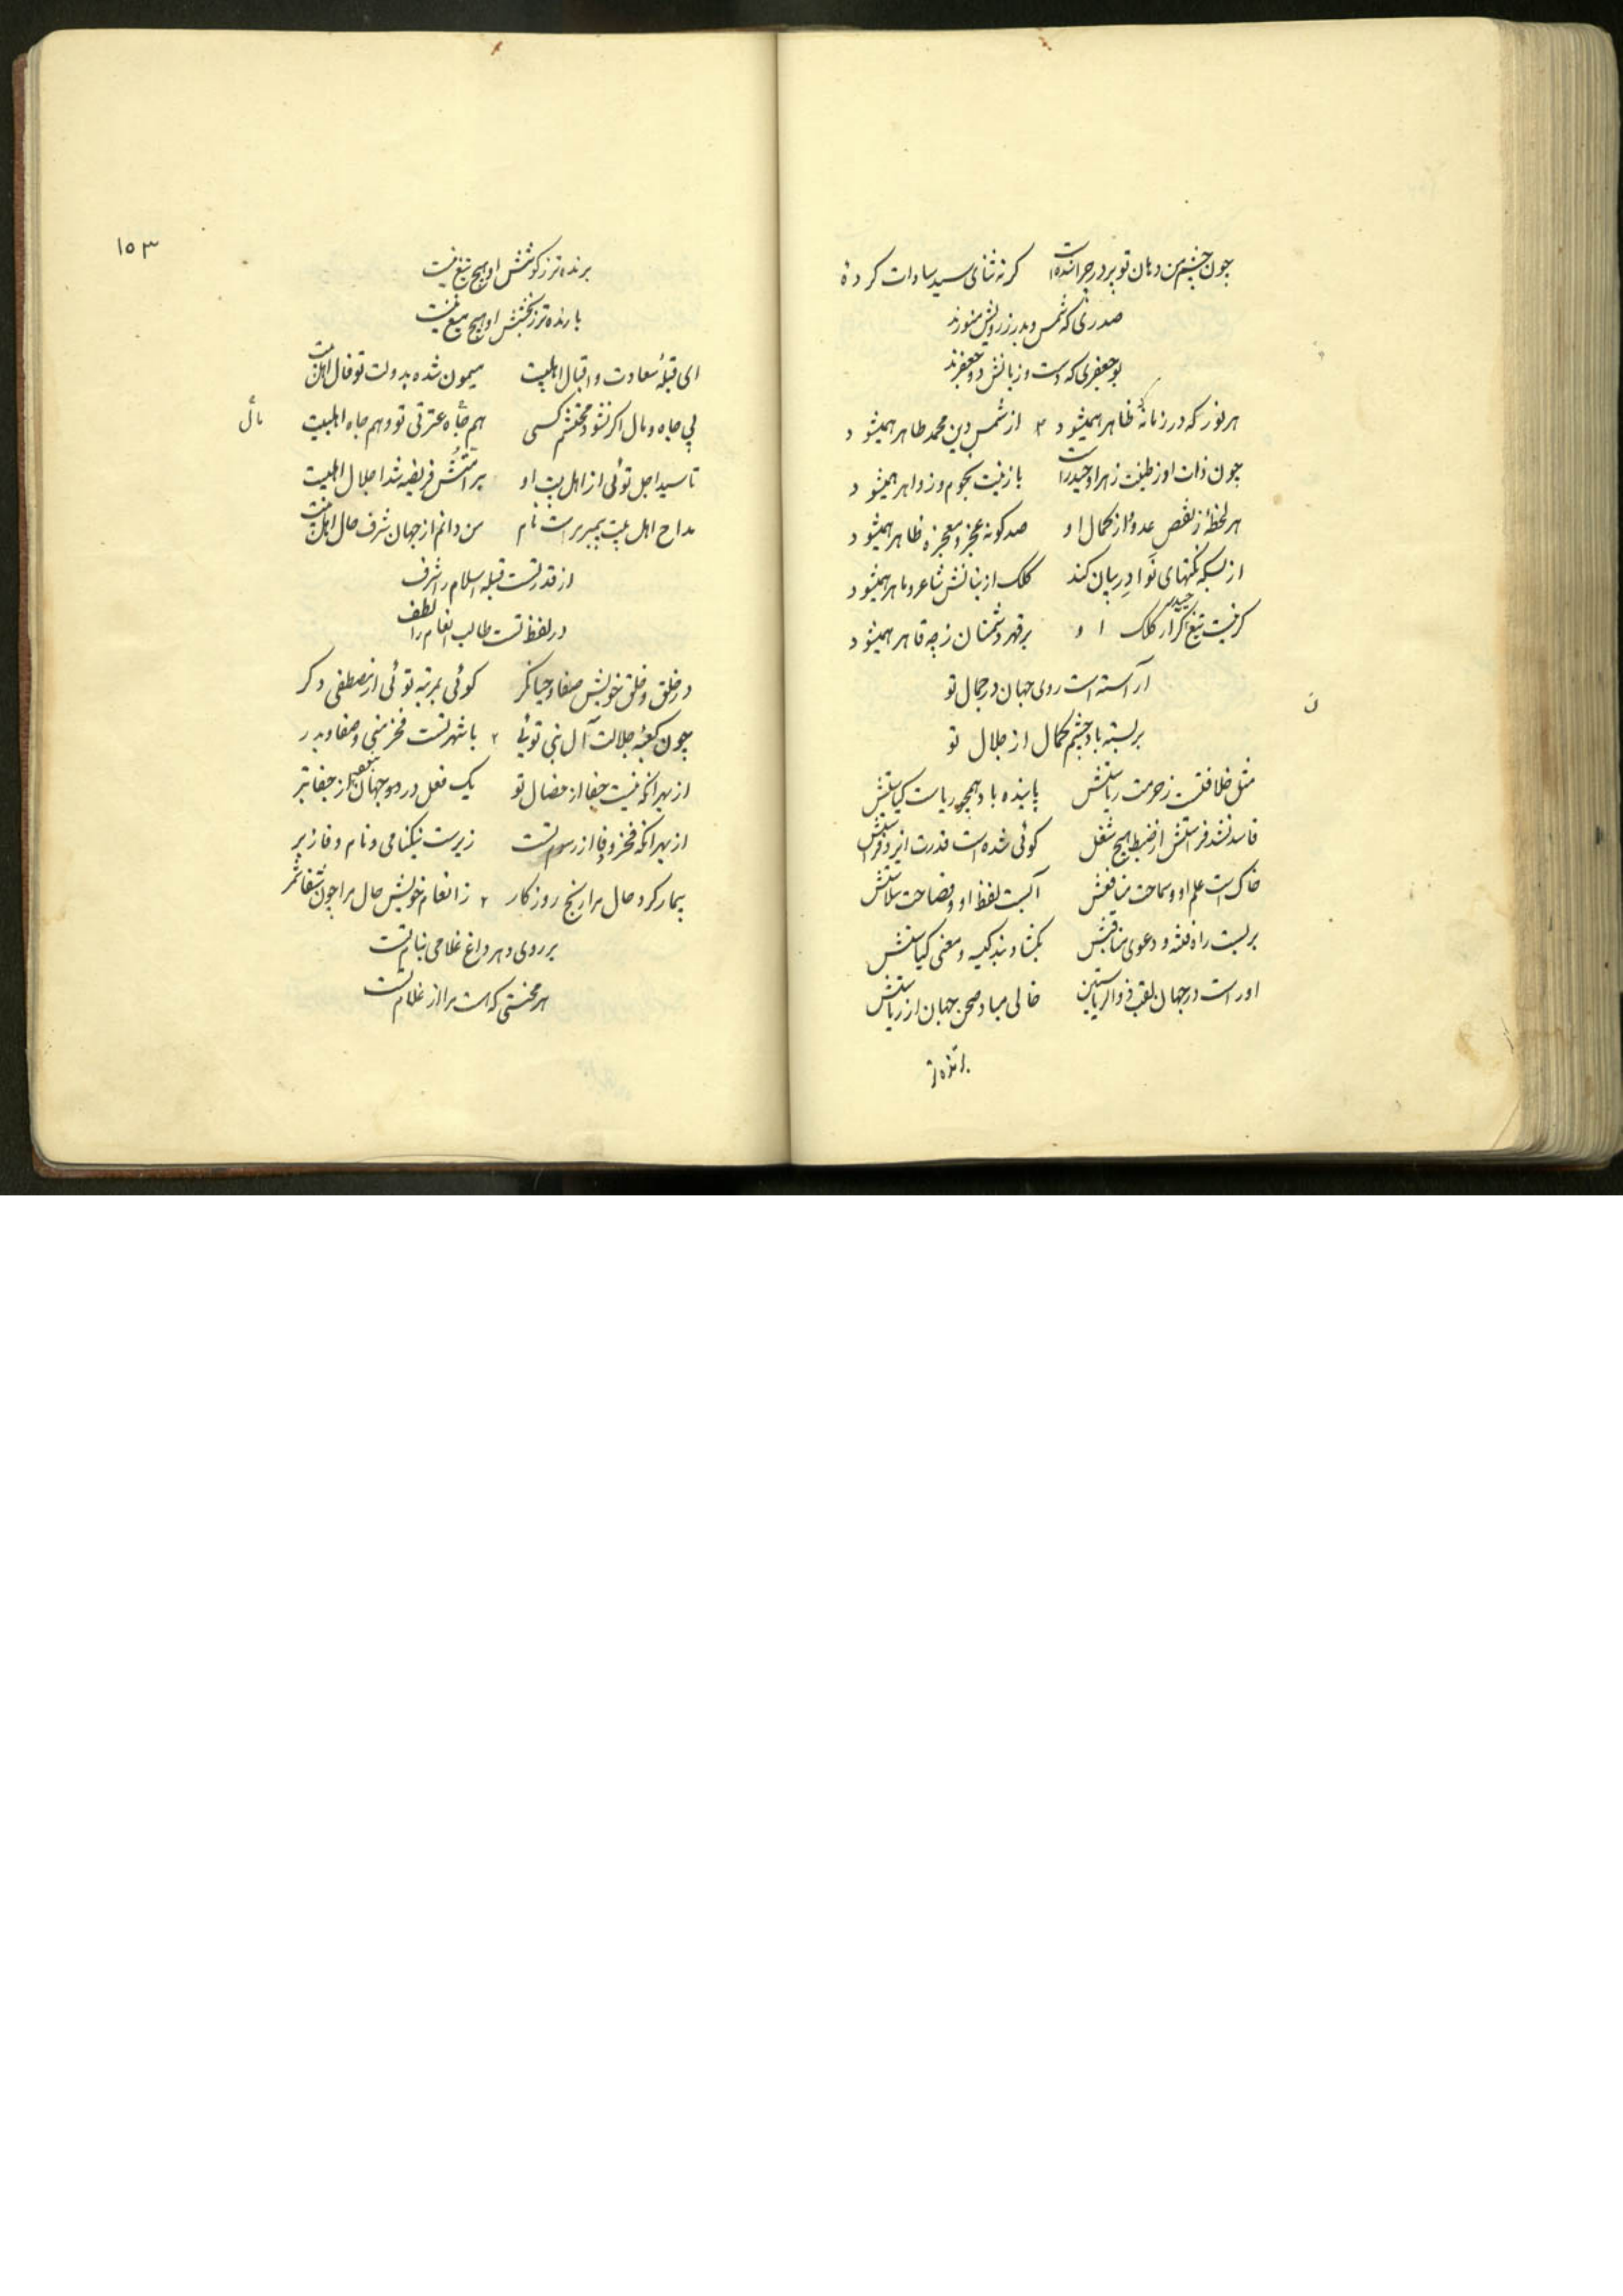 چون چشم من دهان تو پر در چرا شده است کر نه ثنای سید سادات کرده
صدری که شمس و بدر ز رویش منورند
بو جعفری که دست و زبانش دو جعفرند
هر نور که در زمانه ظاهر همیشود از شمس دین محمد طاهر همیشود
چون ذات او ز طینت زهرا و حیدر است با زینت نجوم و زواهر همیشود
هر لحظه از نقص عدو از کمال او صد کونه عجز و معجزه ظاهر همیشود
از بسکه نکتهای نوادر بیان کند کلک از بنانش شاعر و ماهر همیشود
کر نیست تیغ حیدر کرار کلک او بر قهر دشمنان ز چه قاهر همیشود
آراسته است روی جهان در جمال تو
ن
بر بسته باد چشم کمال از جلال تو
مثل خلافتست ز حرمت ریاستش پاینده باد همچو ریاست کیاستش
فاسد نشد فراستش از ضبط هیچ شغل کوئی شده است قدرت ایزد فراستش
خاک است علم او و سماحت منافعش آبست لفظ او و فصاحت سلاستش
بر بست راه فتنه و دعوی مناقبش بکشاد بند کیسه و معنی کیاستش
او راست در جهان لقب ذوالریاستین خالی مباد صحن جهان از ریاستش
برنده تر
١٥٣
برنده تر ز کوشش او هیچ تیغ نیست
بارنده تر ز بخشش او هیچ میغ نیست
ای قبلهٔ سعادت و اقبال اهلبیت میمون شده بدولت تو فال اهل بیت
بی جاه و مال اکر نشود محتشم کسی هم جاه عترتی تو و هم جاه اهلبیت
مال
تا سید اجل توئی از اهل بیت او بر امتش فریضه شد اجلال اهلبیت
مداح اهل بیت پیمبر است نام من دانم از جهان شرف حال اهل بیت
از قدر تست قبله اسلام را شرف
در لفظ تست طالب انعام را لطف
در خلق و خلق خویش صفا و حیا نکر کوئی بمرتبه توئی از مصطفی دکر
چون کعبهٔ جلالت آل نبی توئی با شهر تست فخر منی و صفا و بدر
از بهر آنکه نیست جفا از خصال تو یک فعل در دو جهان از جفا بتر
از بهر آنکه فخر و وفا از رسوم تست زیرست نیکنامی و نام وفا زبر
بیمار کرد حال مرا رنج روزکار ز انعام خویش حال مرا چون شفا شمر
بر روی دهر داغ غلامی بنام تست
هر محنتی که است مرا از غلام تست